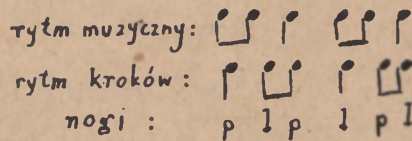 rytm muzyczny:
rytm kroków:
nogi : p l p l p l